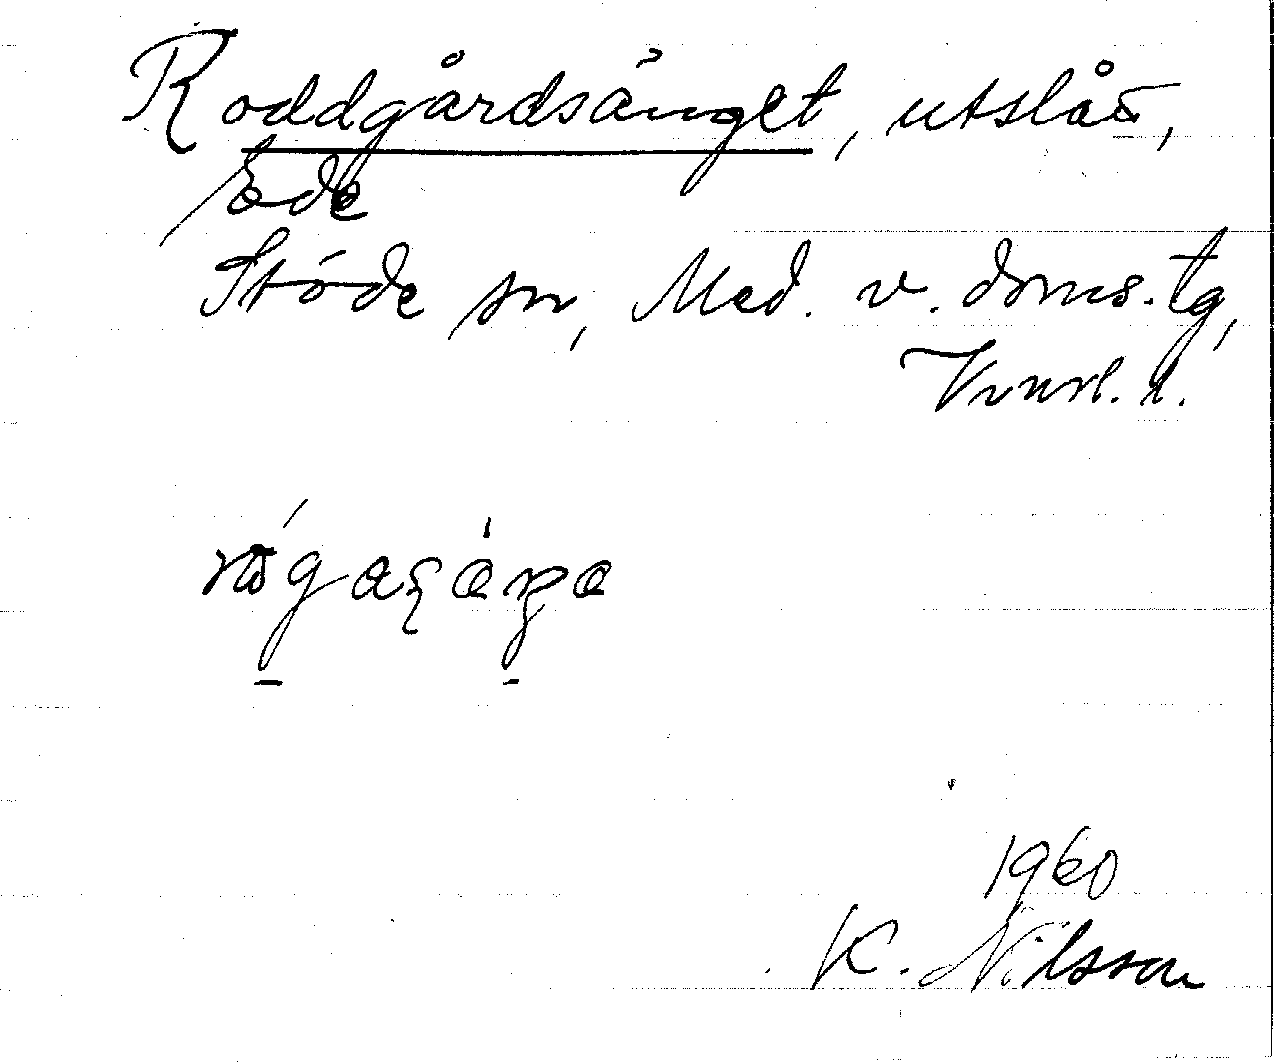 Roddgårdsänget, utslått,
Ede
Stöde sn, Med. v. doms. tg,
Vnrl. l.
1960
K. Nilsson